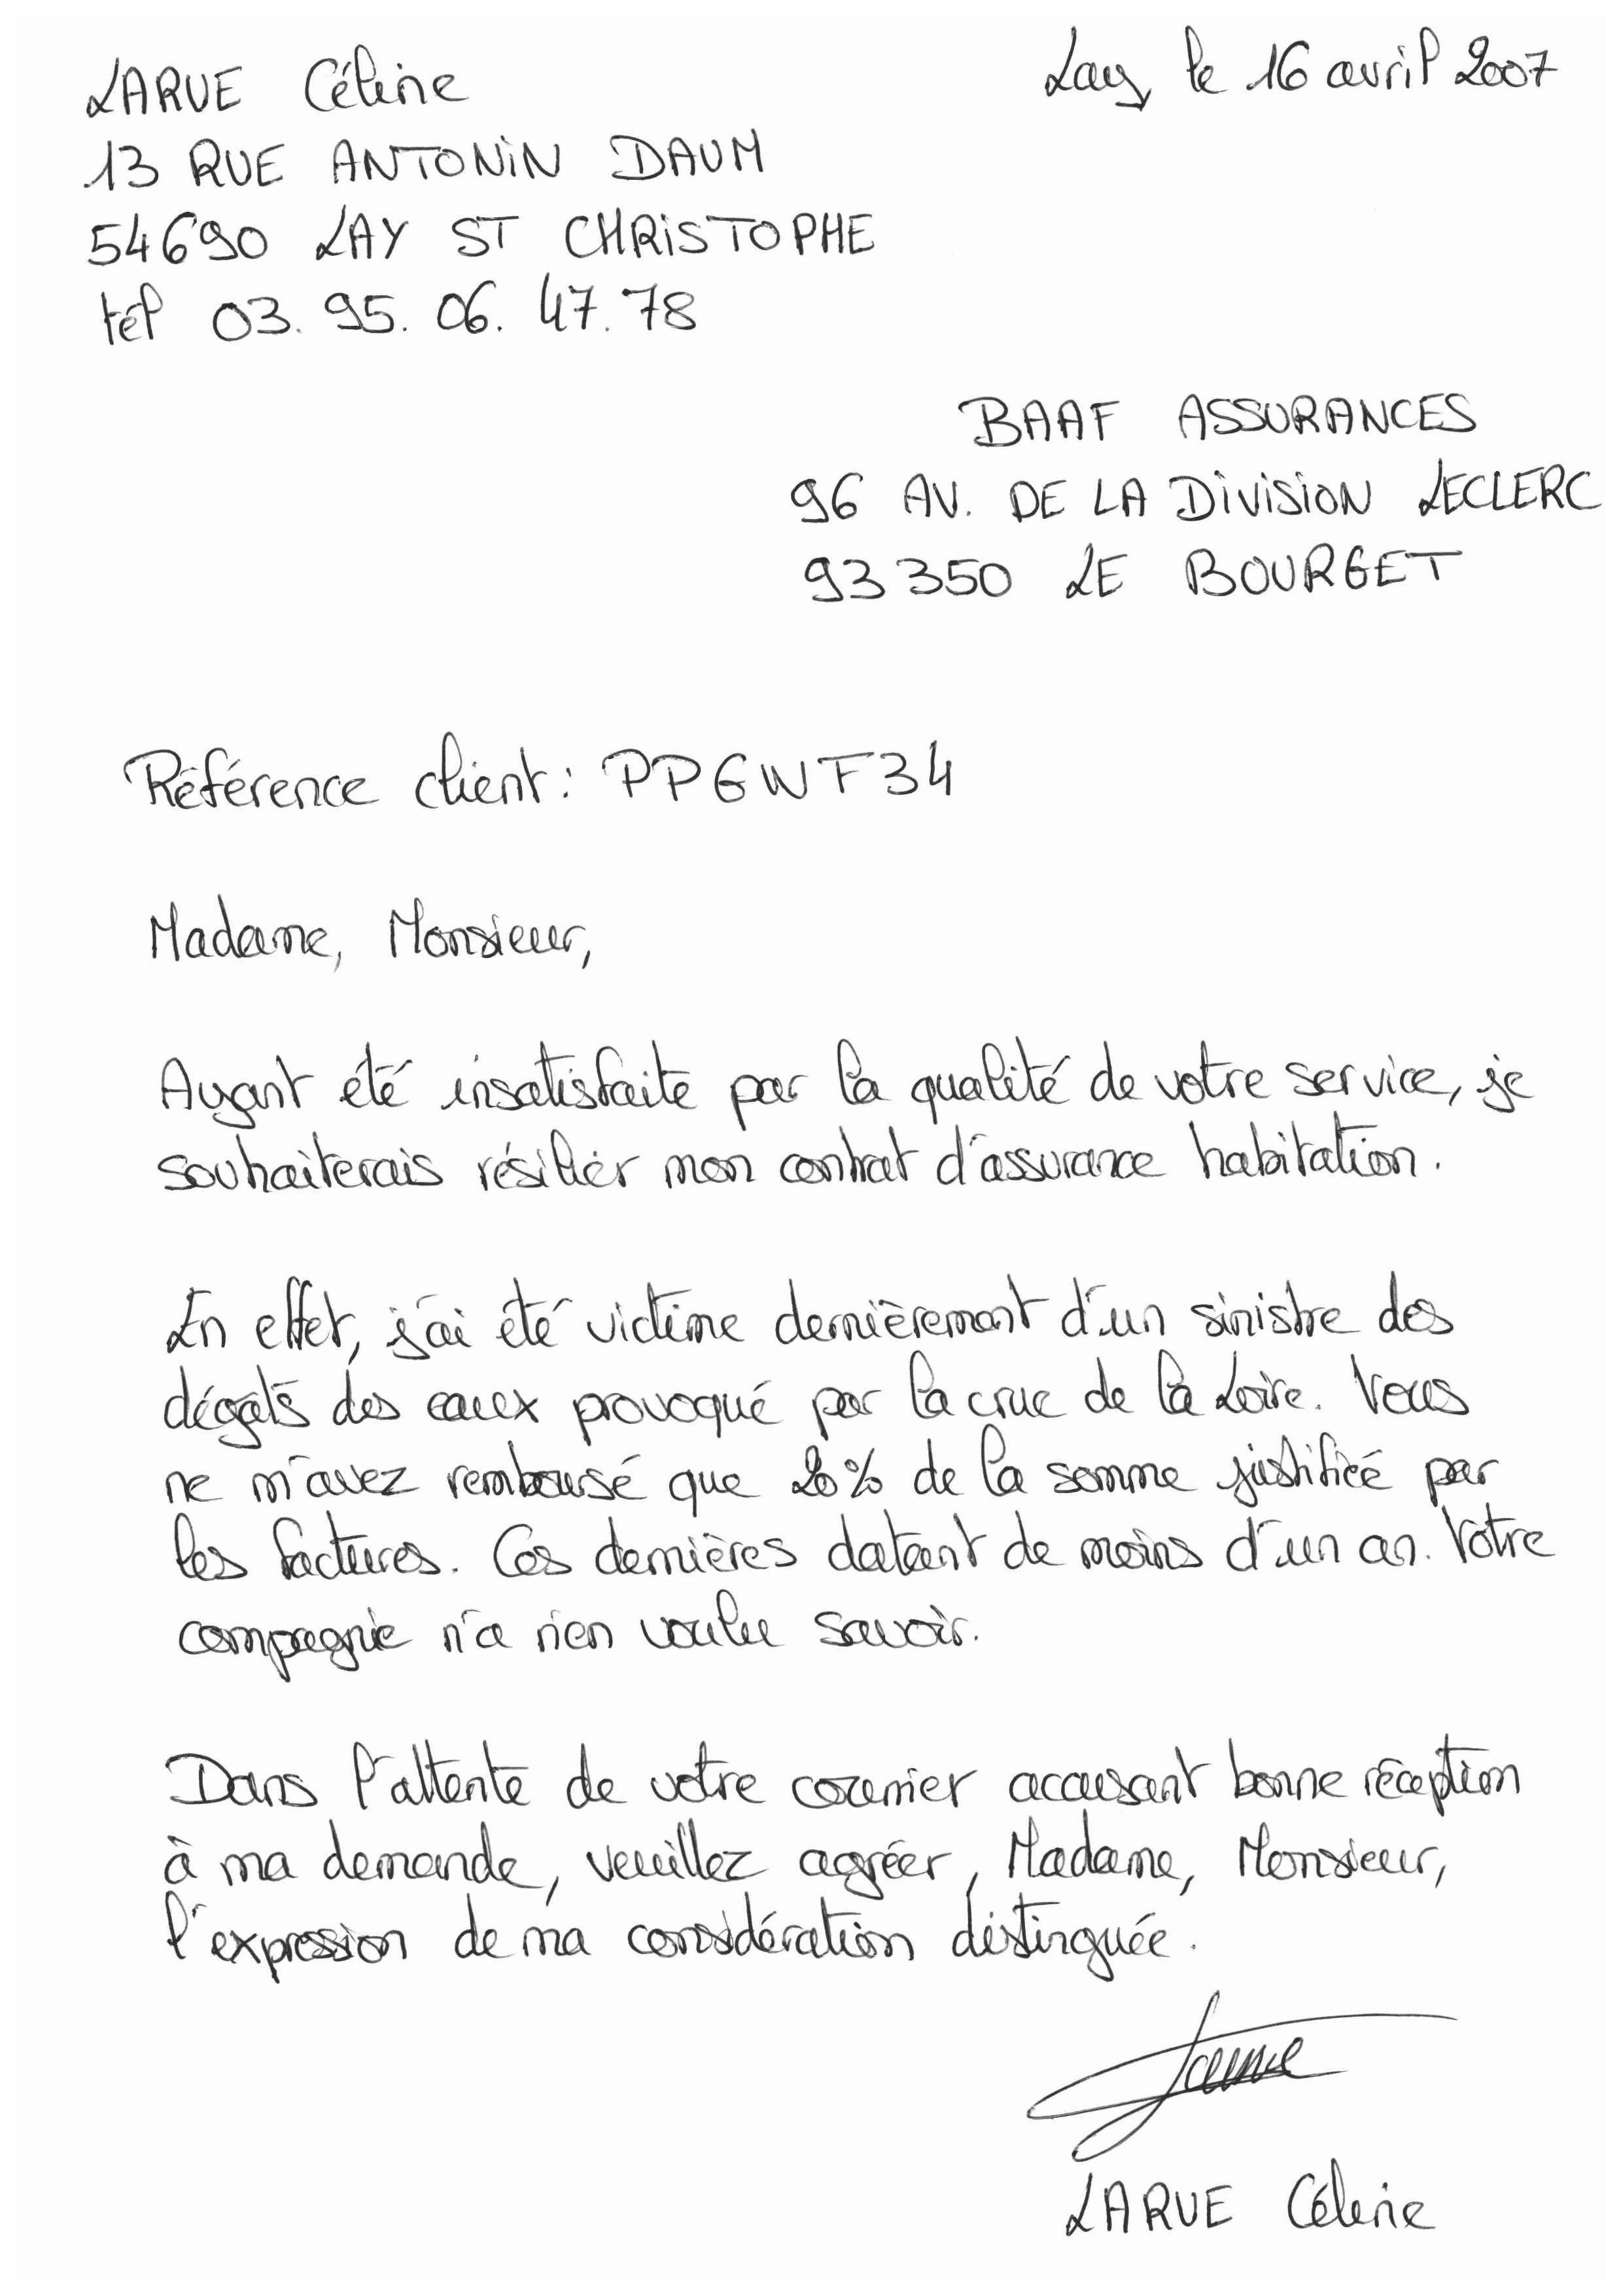 LARUE Céline
Lay le 16 avril 2007
13 RUE ANTONIN DAUM
54690 LAY ST CHRISTOPHE
tél 03. 95. 06. 47. 78
BAAF ASSURANCES
96 AV. DE LA DIVISION LECLERC
93350 LE BOURGET
Référence client : PPGWF34
Madame, Monsieur,
Ayant été insatisfaite par la qualité de votre service, je
souhaiterais résilier mon contrat d'assurance habitation.
En effet, j'ai été victime dernièrement d'un sinistre des
dégats des eaux provoqué par la crue de la Loire. Vous
ne m'avez remboursé que 20% de la somme justifiée par
les factures. Ces dernières datant de moins d'un an. Votre
compagnie n'a rien voulu savoir.
Dans l'attente de votre courrier accusant bonne réception
à ma demande, veuillez agréer, Madame, Monsieur,
l'expression de ma considération distinguée.
Larue
LARUE Céline